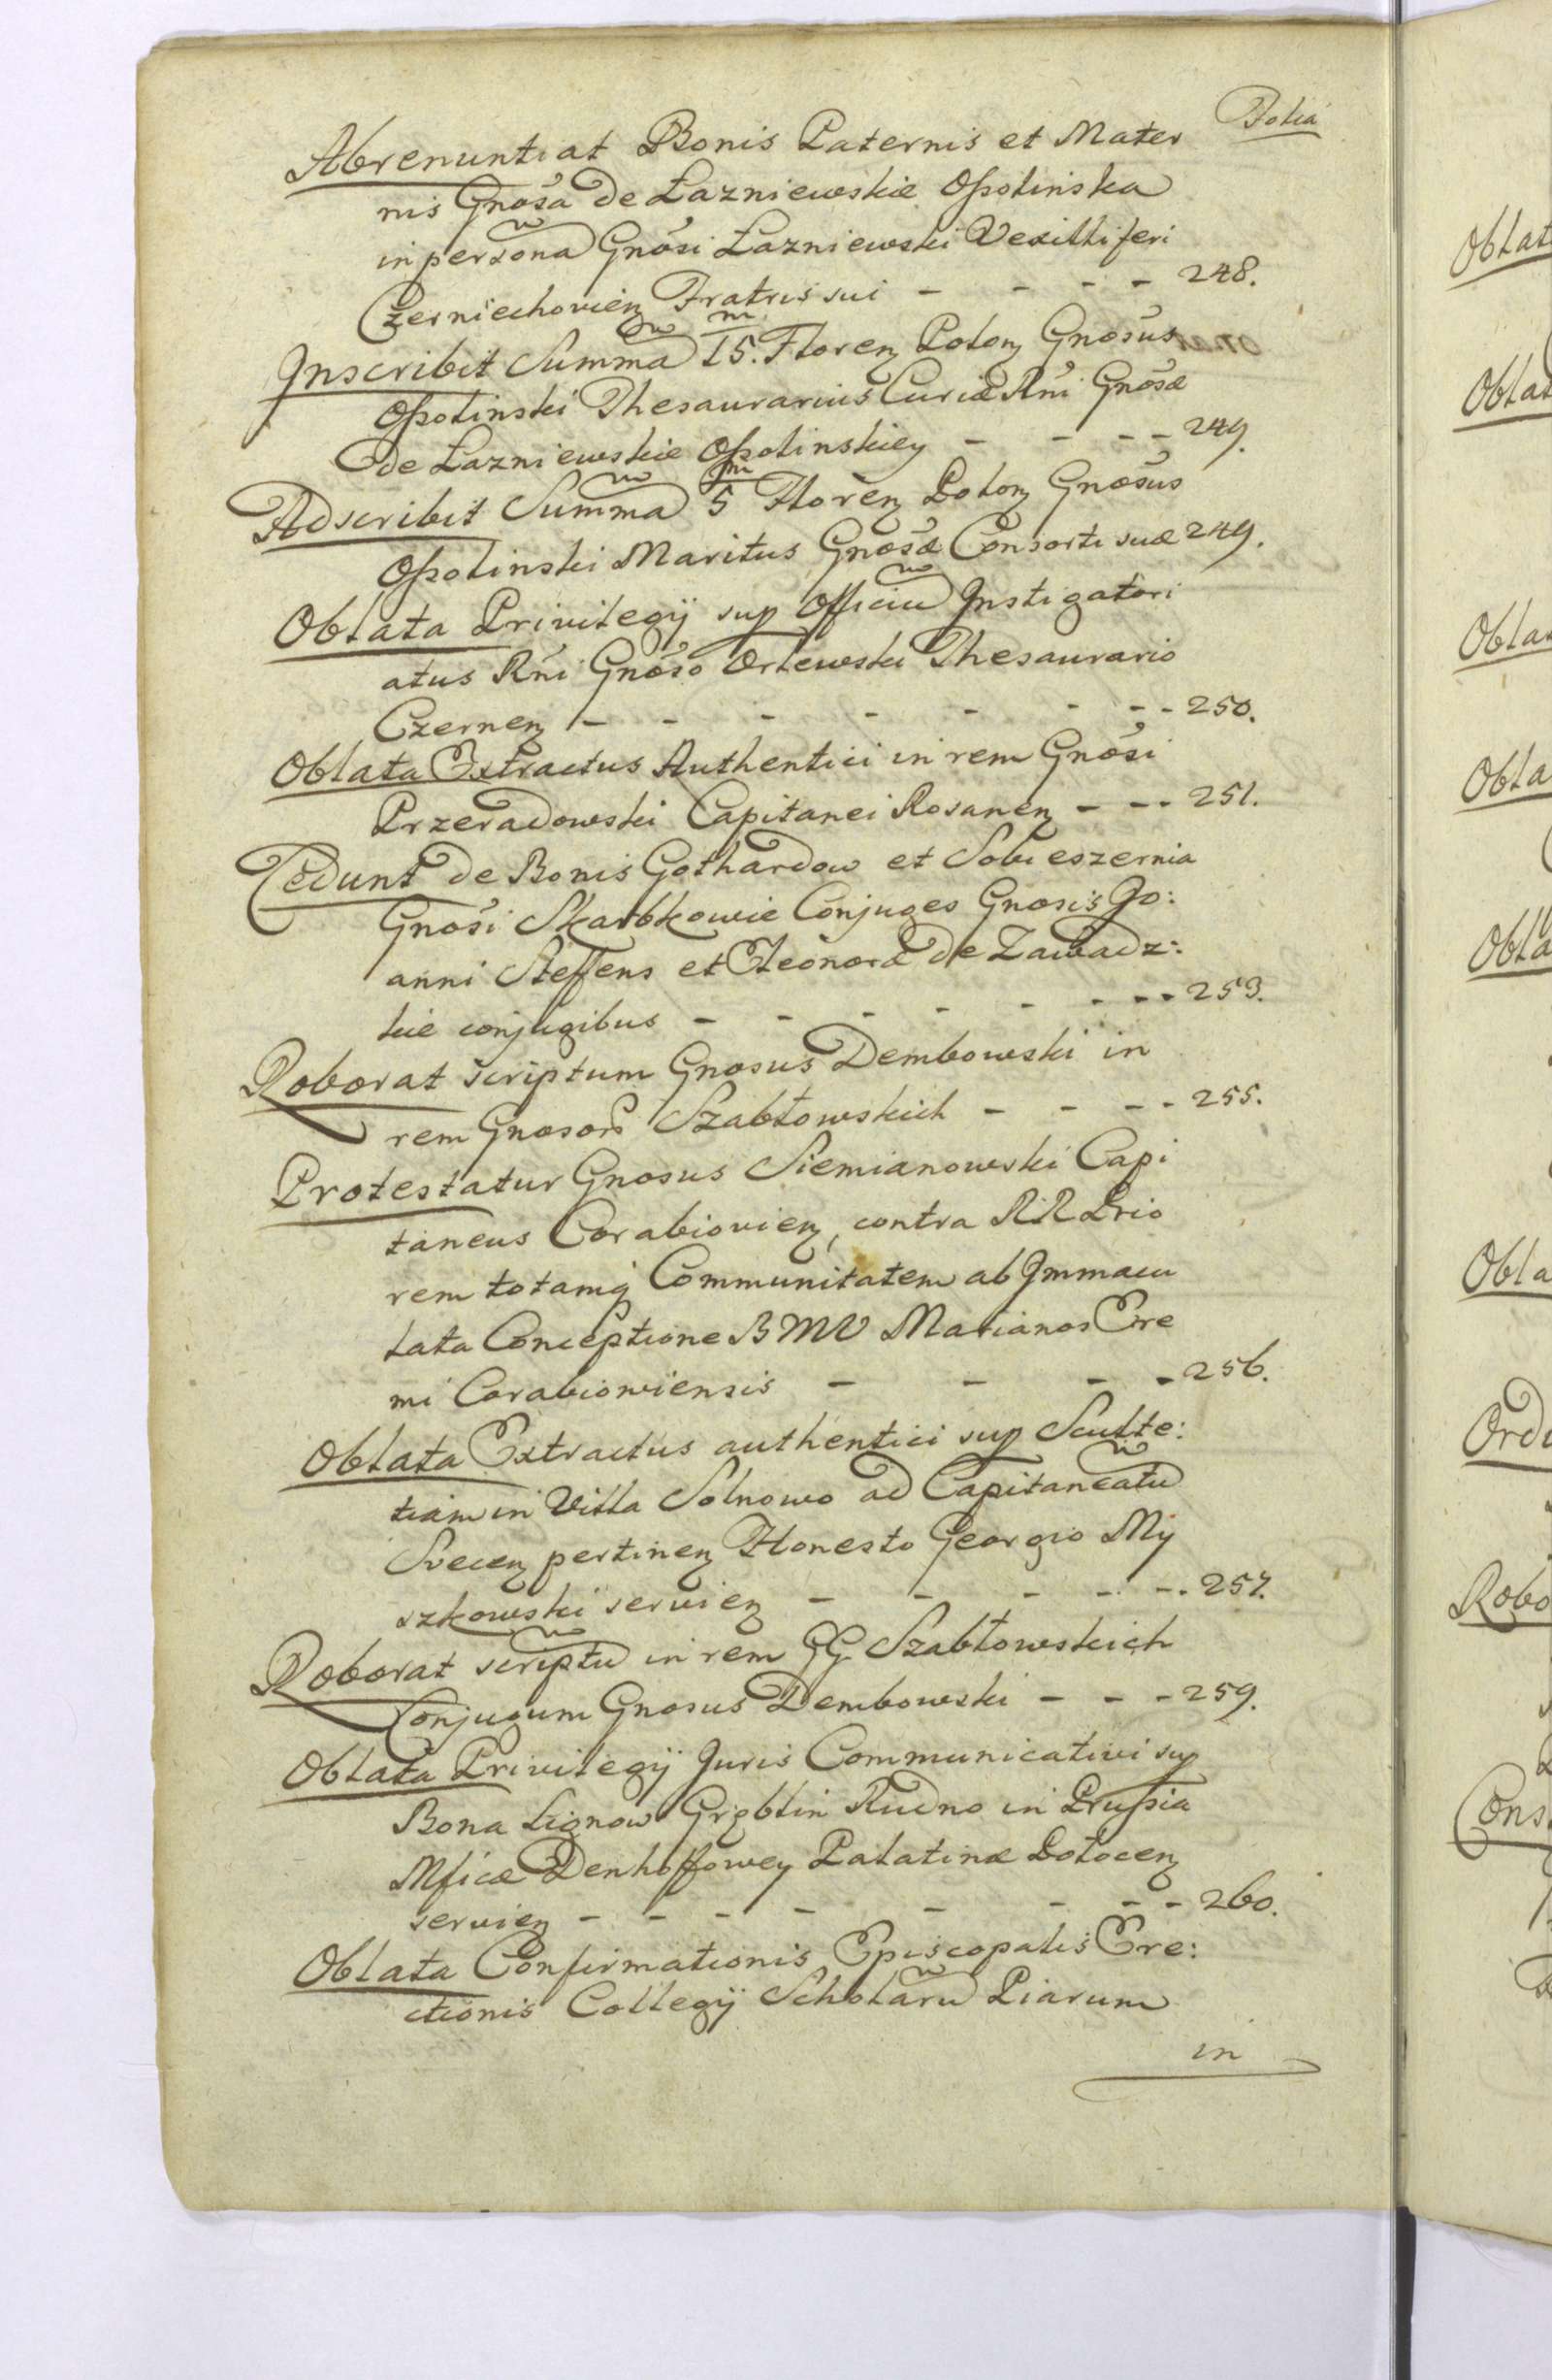 Folia
Abrenuntiat Bonis Paternis et Mater
nis Gnosa de Łazniewskie Ossolinska
in persona Gnosi Łazniewski Vexilliferi
Czerniechovien Fratris sui - - - - 248.
Inscribit Summa 15. Floren Polon Gnosus
Ossolinski Thesaurarius Curiæ Rni Gnosæ
de Łazniewskie Ossolinskiey - - - - 249.
Adscribit Summa 5 Floren Polon Gnosus
Ossolinski Maritus Gnosæ Consorti suæ 249.
Oblata Privilegij sup Officiu Instigatori
atus Rni Gnoso Orlewski Thesaurario
Czernen - - - - - - - - 250.
Oblata Extractus Authentici in rem Gnosi
Przeradowski Capitanei Rosanen - - - 251.
Cedunt de Bonis Gothardow et Sobieszernia
Gnosi Skarbkowie Conjuges Gnosis Jo:
anni Steffens et Eleonoræ de Zawadz:
kie conjugibus - - - - - - - - 253.
Roborat scriptum Gnosus Dembowski in
rem Gnosor Szabłowskich - - - - 255.
Protestatur Gnosus Siemianowski Capi
taneus Corabiovien, contra RR Prio
rem totamq Communitatem ab Immacu
lata Conceptione B M V Marianos Ere
mi Corabioviensis - - - - 256.
Oblata Extractus authentici sup Sculte:
tiam in Villa Solnowo ad Capitaneatu
Svecen pertinen Honesto Georgio My
szkowski servien - - - - - - 257.
Roborat scriptu in rem GG Szabłowskich
Conjugum Gnosus Dembowski - - - 259.
Oblata Privilegij Juris Communicativi sup
Bona Lignow Gręblin Rudno in Prussia
Mficæ Denhoffowey Palatinæ Polocen
servien - - - - - - - - 260.
Oblata Confirmationis Episcopalis Ere:
ctionis Collegij Scholaru Piarum
in